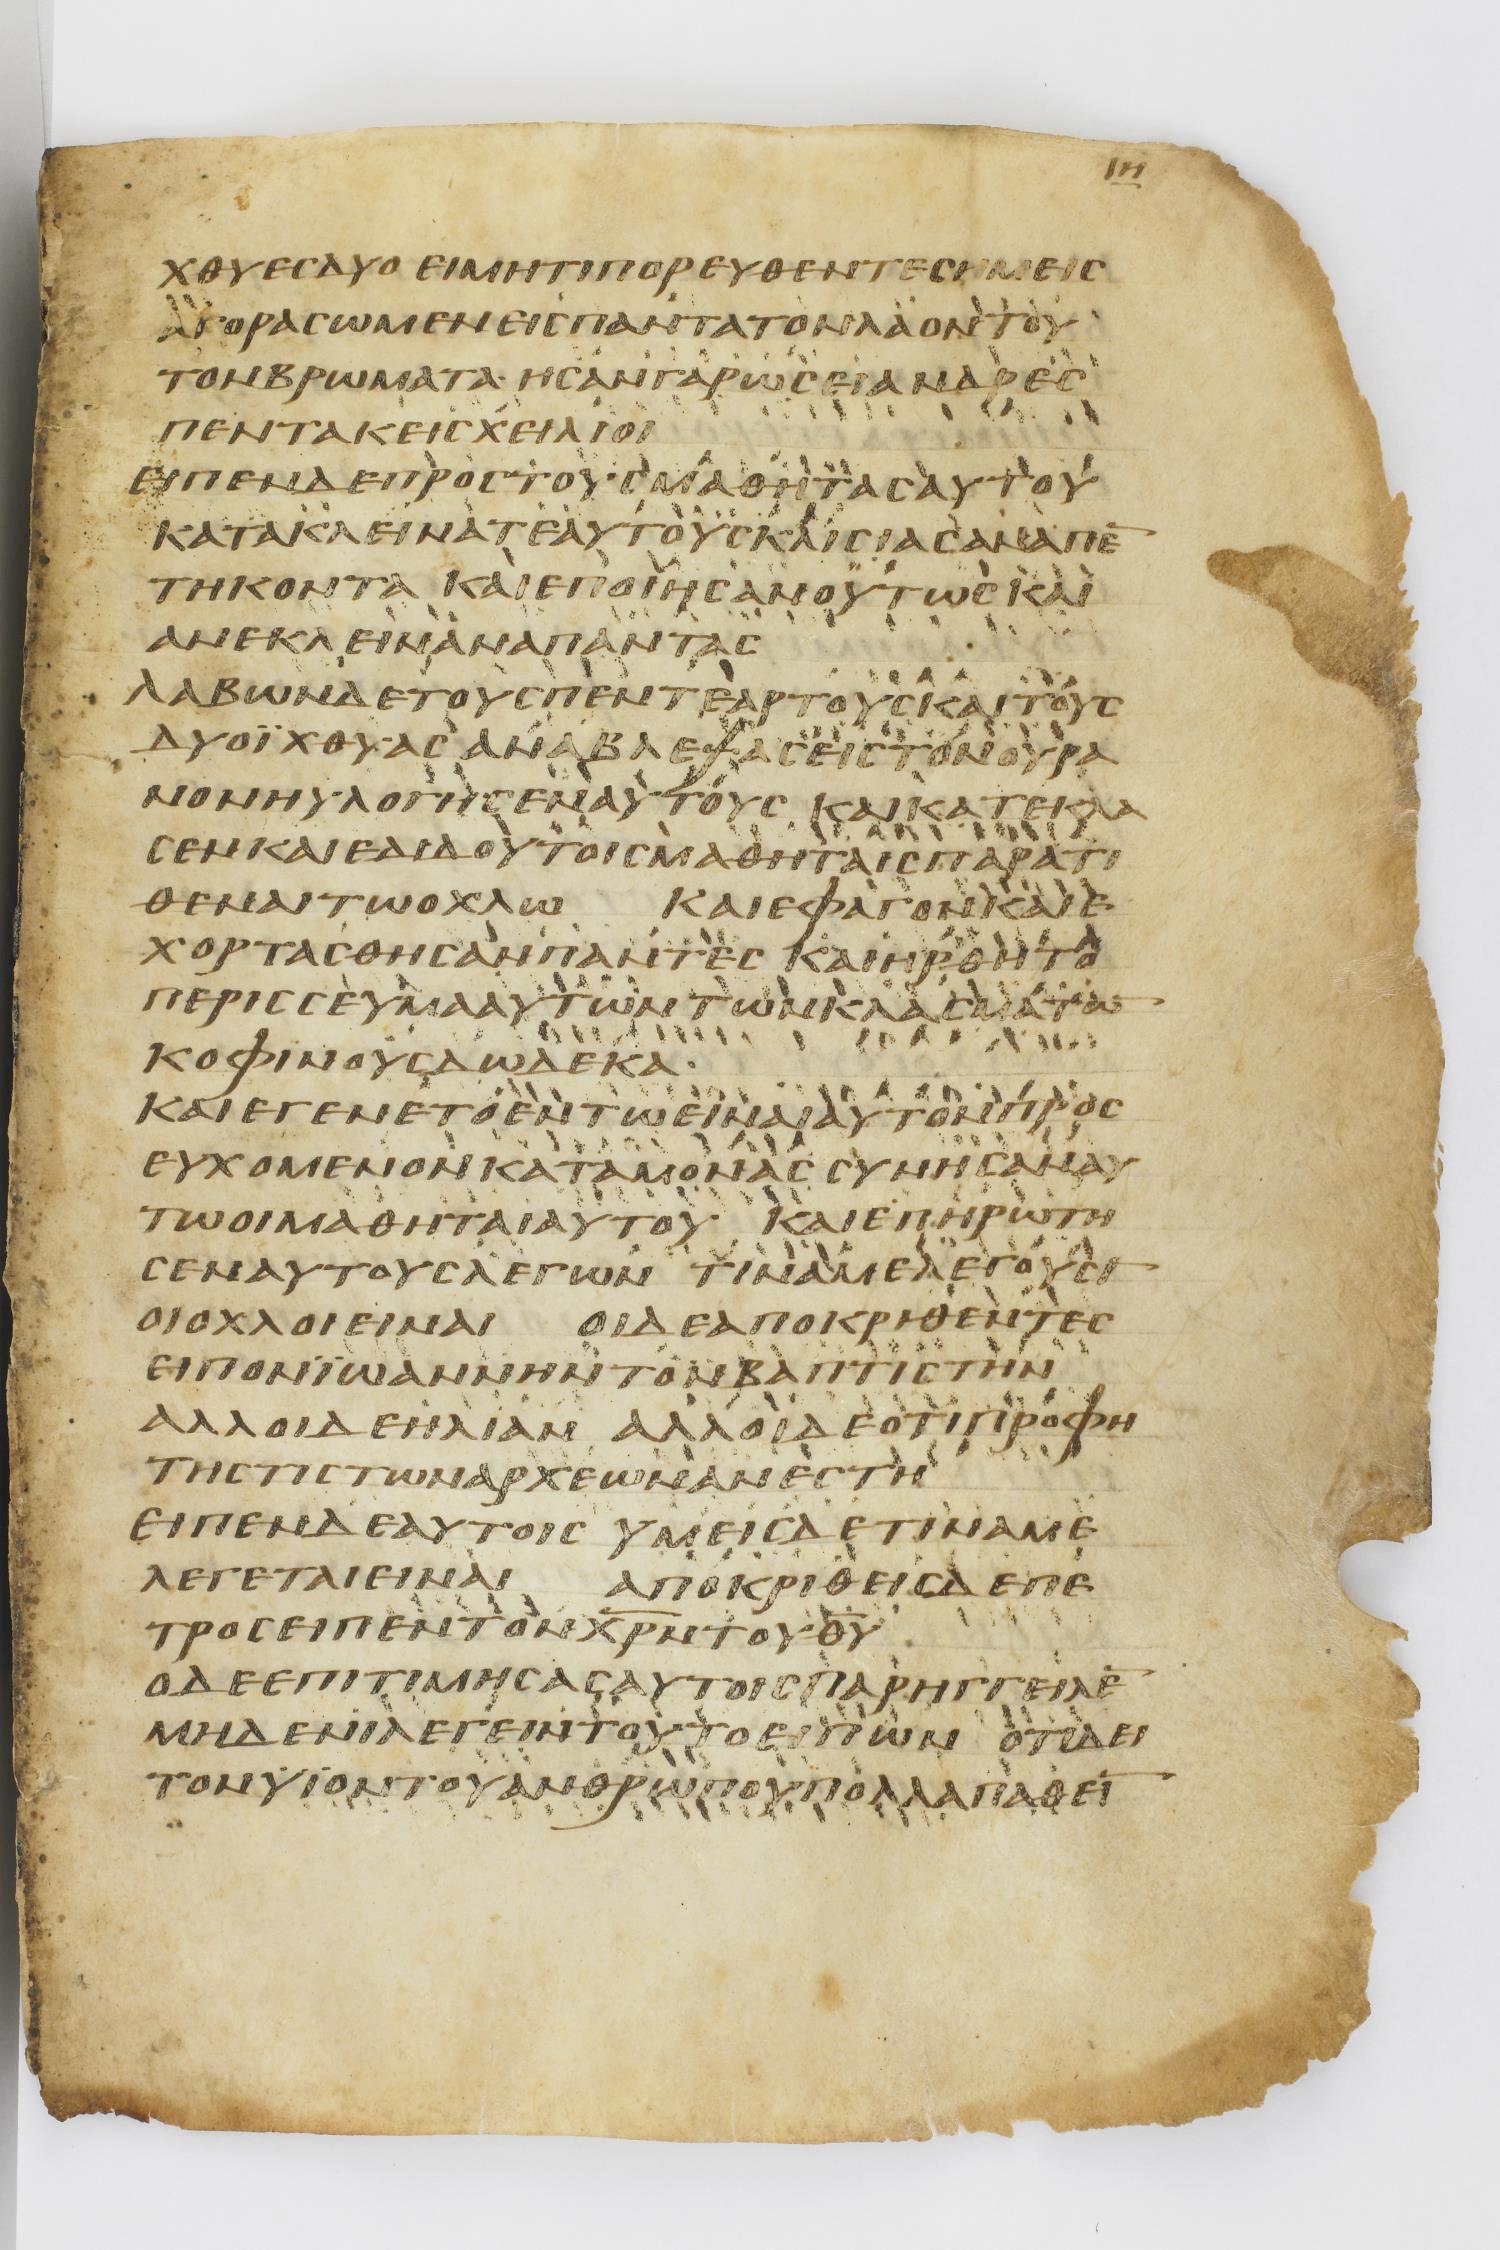 ιη
χθυεςδυο ειμητιπορευθεντεςημεις
αγοραςωμενειςπαντατονλαοντου
τονβρωματα· ηςανγαρωςειανδρες
πεντακειςχειλιοι
ειπενδεπροςτουςμαθηταςαυτου
κατακλεινατεαυτουςκλιςιαςαναπε̅
τηκοντα καιεποιηςανουτωςκαι
ανεκλειναναπαντας
λαβωνδετουςπεντεαρτουςκαιτους
δυοϊχθυαςαναβλεψαςειςτονουρα
νονηυλογηςεναυτους καικατεκλα
ςενκαιεδιδουτοιςμαθηταιςπαρατι
θεναιτωοχλω καιεφαγονκαιε
χορταςθηςανπαντες καιηρθητο
περιςςευμααυτωντωνκλαςματω̅
κοφινουςδωδεκα·
καιεγενετοεντωειναιαυτονπρος
ευχομενονκαταμοναςςυνηςαναυ
τωοιμαθηταιαυτου καιεπηρωτη
ςεναυτουςλεγων τιναμελεγουςι̅
οιοχλοιειναι οιδεαποκριθεντες
ειπονϊωαννηντονβαπτιςτην
αλλοιδεηλιαν αλλοιδεοτιπροφη
τηςτιςτωναρχεωνανεςτη
ειπενδεαυτοις υμειςδετιναμε
λεγεταιειναι αποκριθειςδεπε
τροςειπεντονχ̅ρ̅ν̅τουθ̅υ̅
οδεεπιτιμηςαςαυτοιςπαρηγγειλε̅
μηδενιλεγειντουτοειπων οτιδει
τονϋϊοντουανθρωπουπολλαπαθει̅